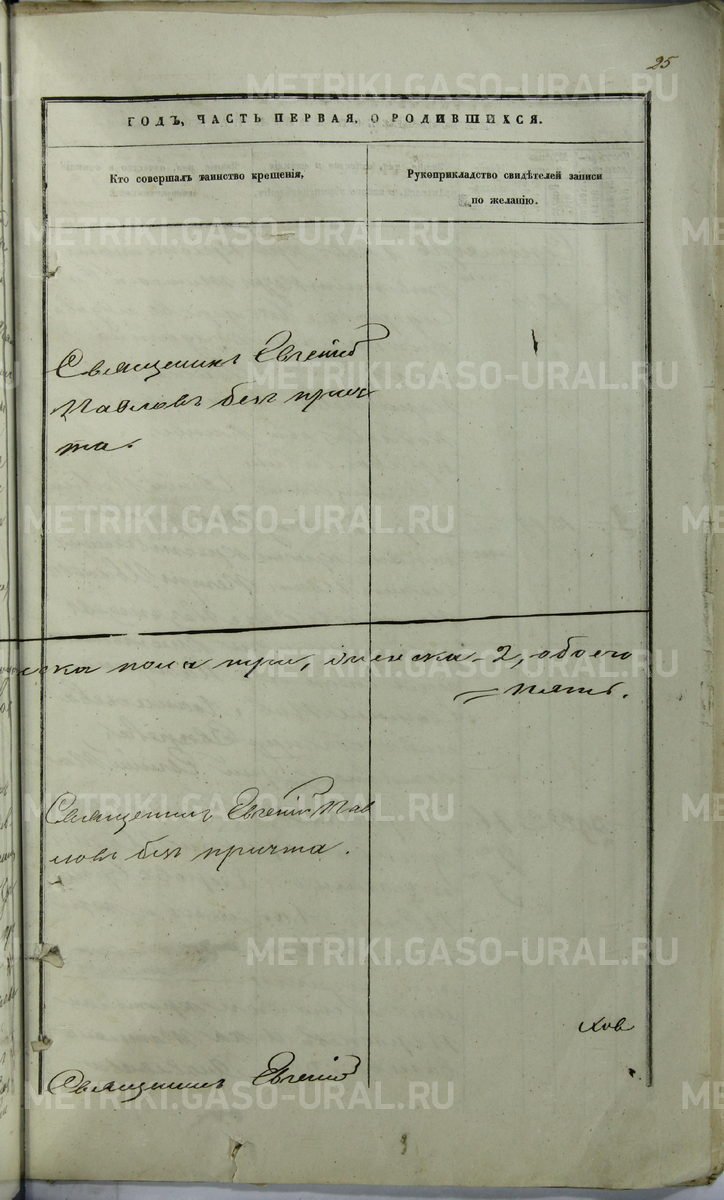 25
ГОДЪ, ЧАСТЬ ПЕРВАЯ, О РОДИВШИХСЯ.
Кто совершалъ таинство крещенія,
Рукоприкладство свидѣтелей записи
по желанію.
Священникъ Евгеній
Павловъ безъ прич-
та.
пола три, женска - 2, обоего
= пять.
Священникъ Евгеній Пав
ловъ безъ причта.
Священникъ Евгеній
METRIKI.GASO-URAL.RU